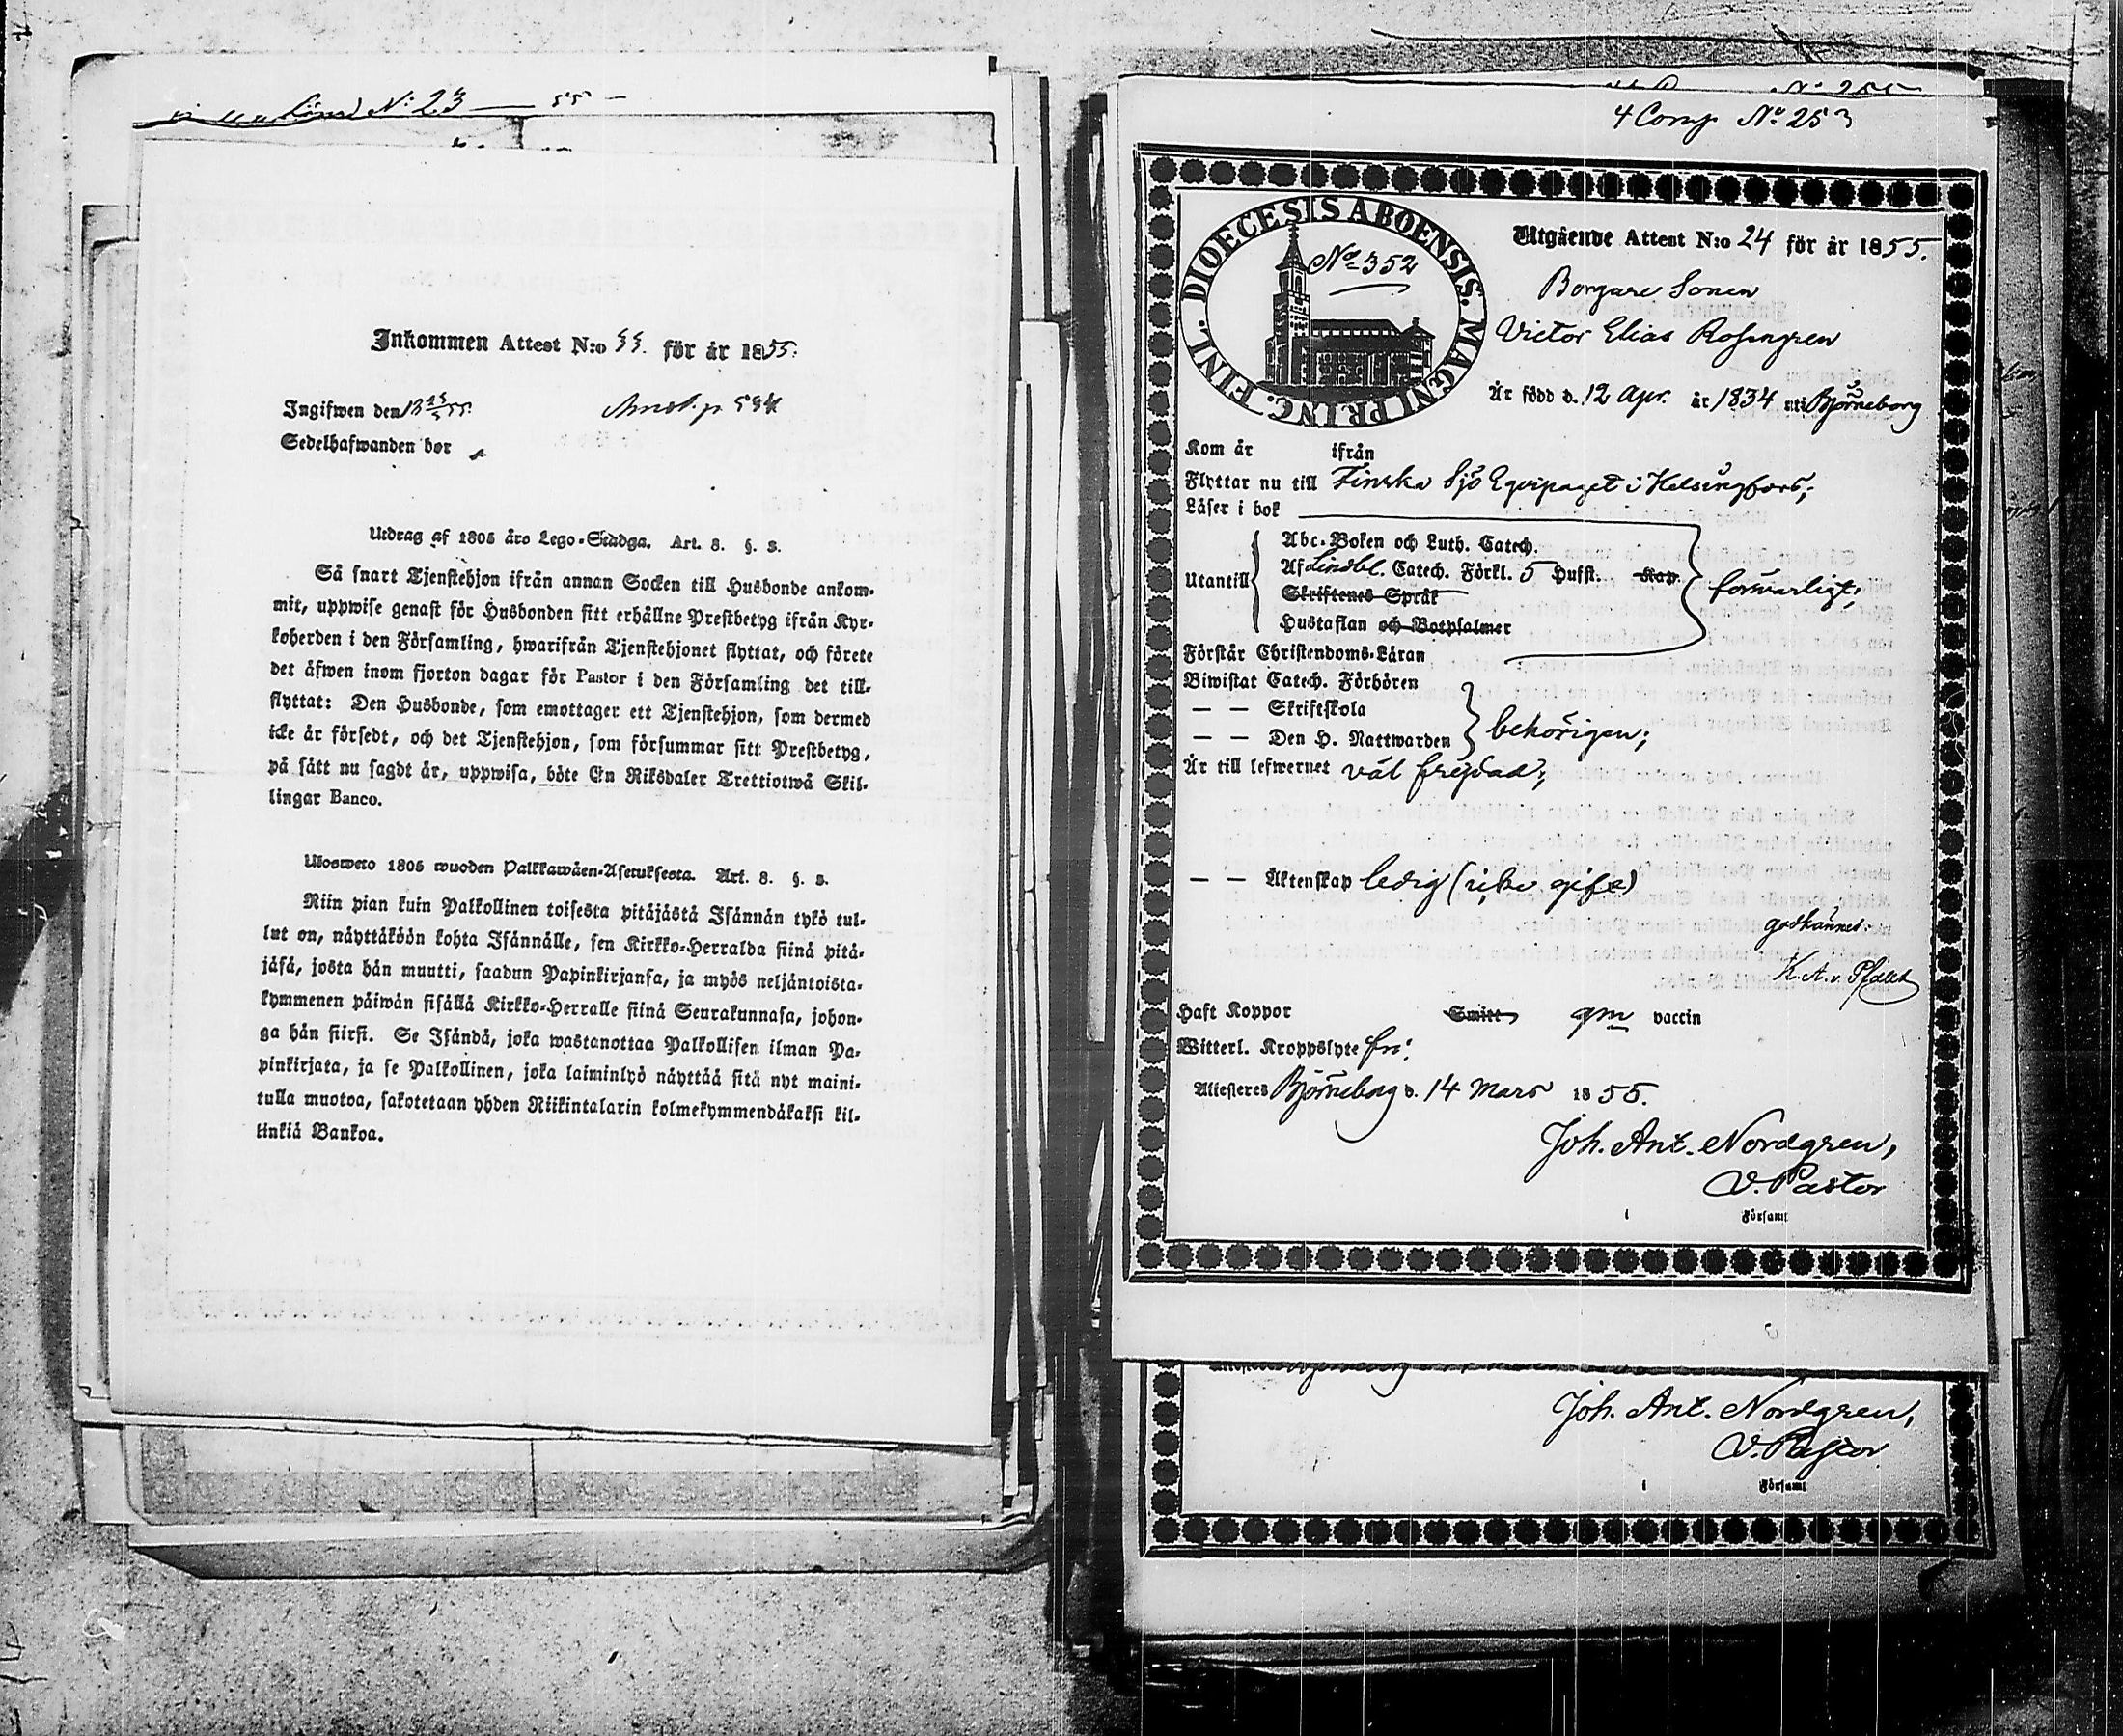 N: 23 — 55 —
Inkommen Attest N:o 33. för år 1855.
Ingifwen den
Sedelhafwanden bor
Utdrag af 1805 års Lego-Stadga. Art. 8. §. 3.
Så snart Tjenstehjon ifrån annan Socken till Husbonde ankom-
mit, uppwise genast för Husbonden sitt erhållne Prestbetyg ifrån Kyr-
koherden i den Församling, hwarifrån Tjenstehjonet flyttat, och förete
det äfwen inom fjorton dagar för Pastor i den Församling det till-
flyttat: Den Husbonde, som emottager ett Tjenstehjon, som dermed
icke är försedt, och det Tjenstehjon, som försummar sitt Prestbetyg,
på sätt nu sagdt är, uppwisa, böte En Riksdaler Trettiotwå Skil-
lingar Banco.
Ulosweto 1805 wuoden Palkkawäen-Asetuksesta. Art. 8. §. 3.
Niin pian kuin Palkollinen toisesta pitäjästä Isännän tykö tul-
lut on, näyttäköön kohta Isännälle, sen Kirkko-Herralda siinä pitä-
jäsä, josta hän muutti, saadun Papinkirjansa, ja myös neljäntoista-
kymmenen päiwän sisällä Kirkko-Herralle siinä Seurakunnasa, johon-
ga hän siirsi. Se Isändä, joka wastanottaa Palkollisen ilman Pa-
pinkirjata, ja se Palkollinen, joka laiminlyö näyttää sitä nyt maini-
tulla muotoa, sakotetaan yhden Riikintalarin kolmekymmendäkaksi kil-
linkiä Bankoa.
4 Comp No 253
DIOECESIS ABOENSIS. MAGNI PRINC. FINL.
No 352
Utgående Attest N:o 24 för år 1855.
Borgare Sonen
Victor Elias Rosengren
Är född d. 12 Apr. år 1834 uti Björneborg
Kom år ifrån
Flyttar nu till Finska Sjö Equipaget i Helsingfors;
Läser i bok
Abc-Boken och Luth. Catech.
Utantill Af Lindbl. Catech. Förkl. 5 Hufst. Kap. försvarligt;
Skriftenes Språk
Hustaflan och Botpsalmer
Förstår Christendoms-Läran
Biwistat Catech. Förhören
— — Skriftskola
— — Den H. Nattwarden behörigen;
Är till lefwernet väl frejdad;
— — Äktenskap ledig (icke gift)
godkännes:
Haft Koppor Smitt gm vaccin
Witterl. Kroppslyte fri;
Attesteres Björneborg d. 14 Mars 1855.
Joh. Ant. Nordgren,
V. Pastor
i Församl
Joh. Ant. Nordgren,
V. Pastor
i Församl